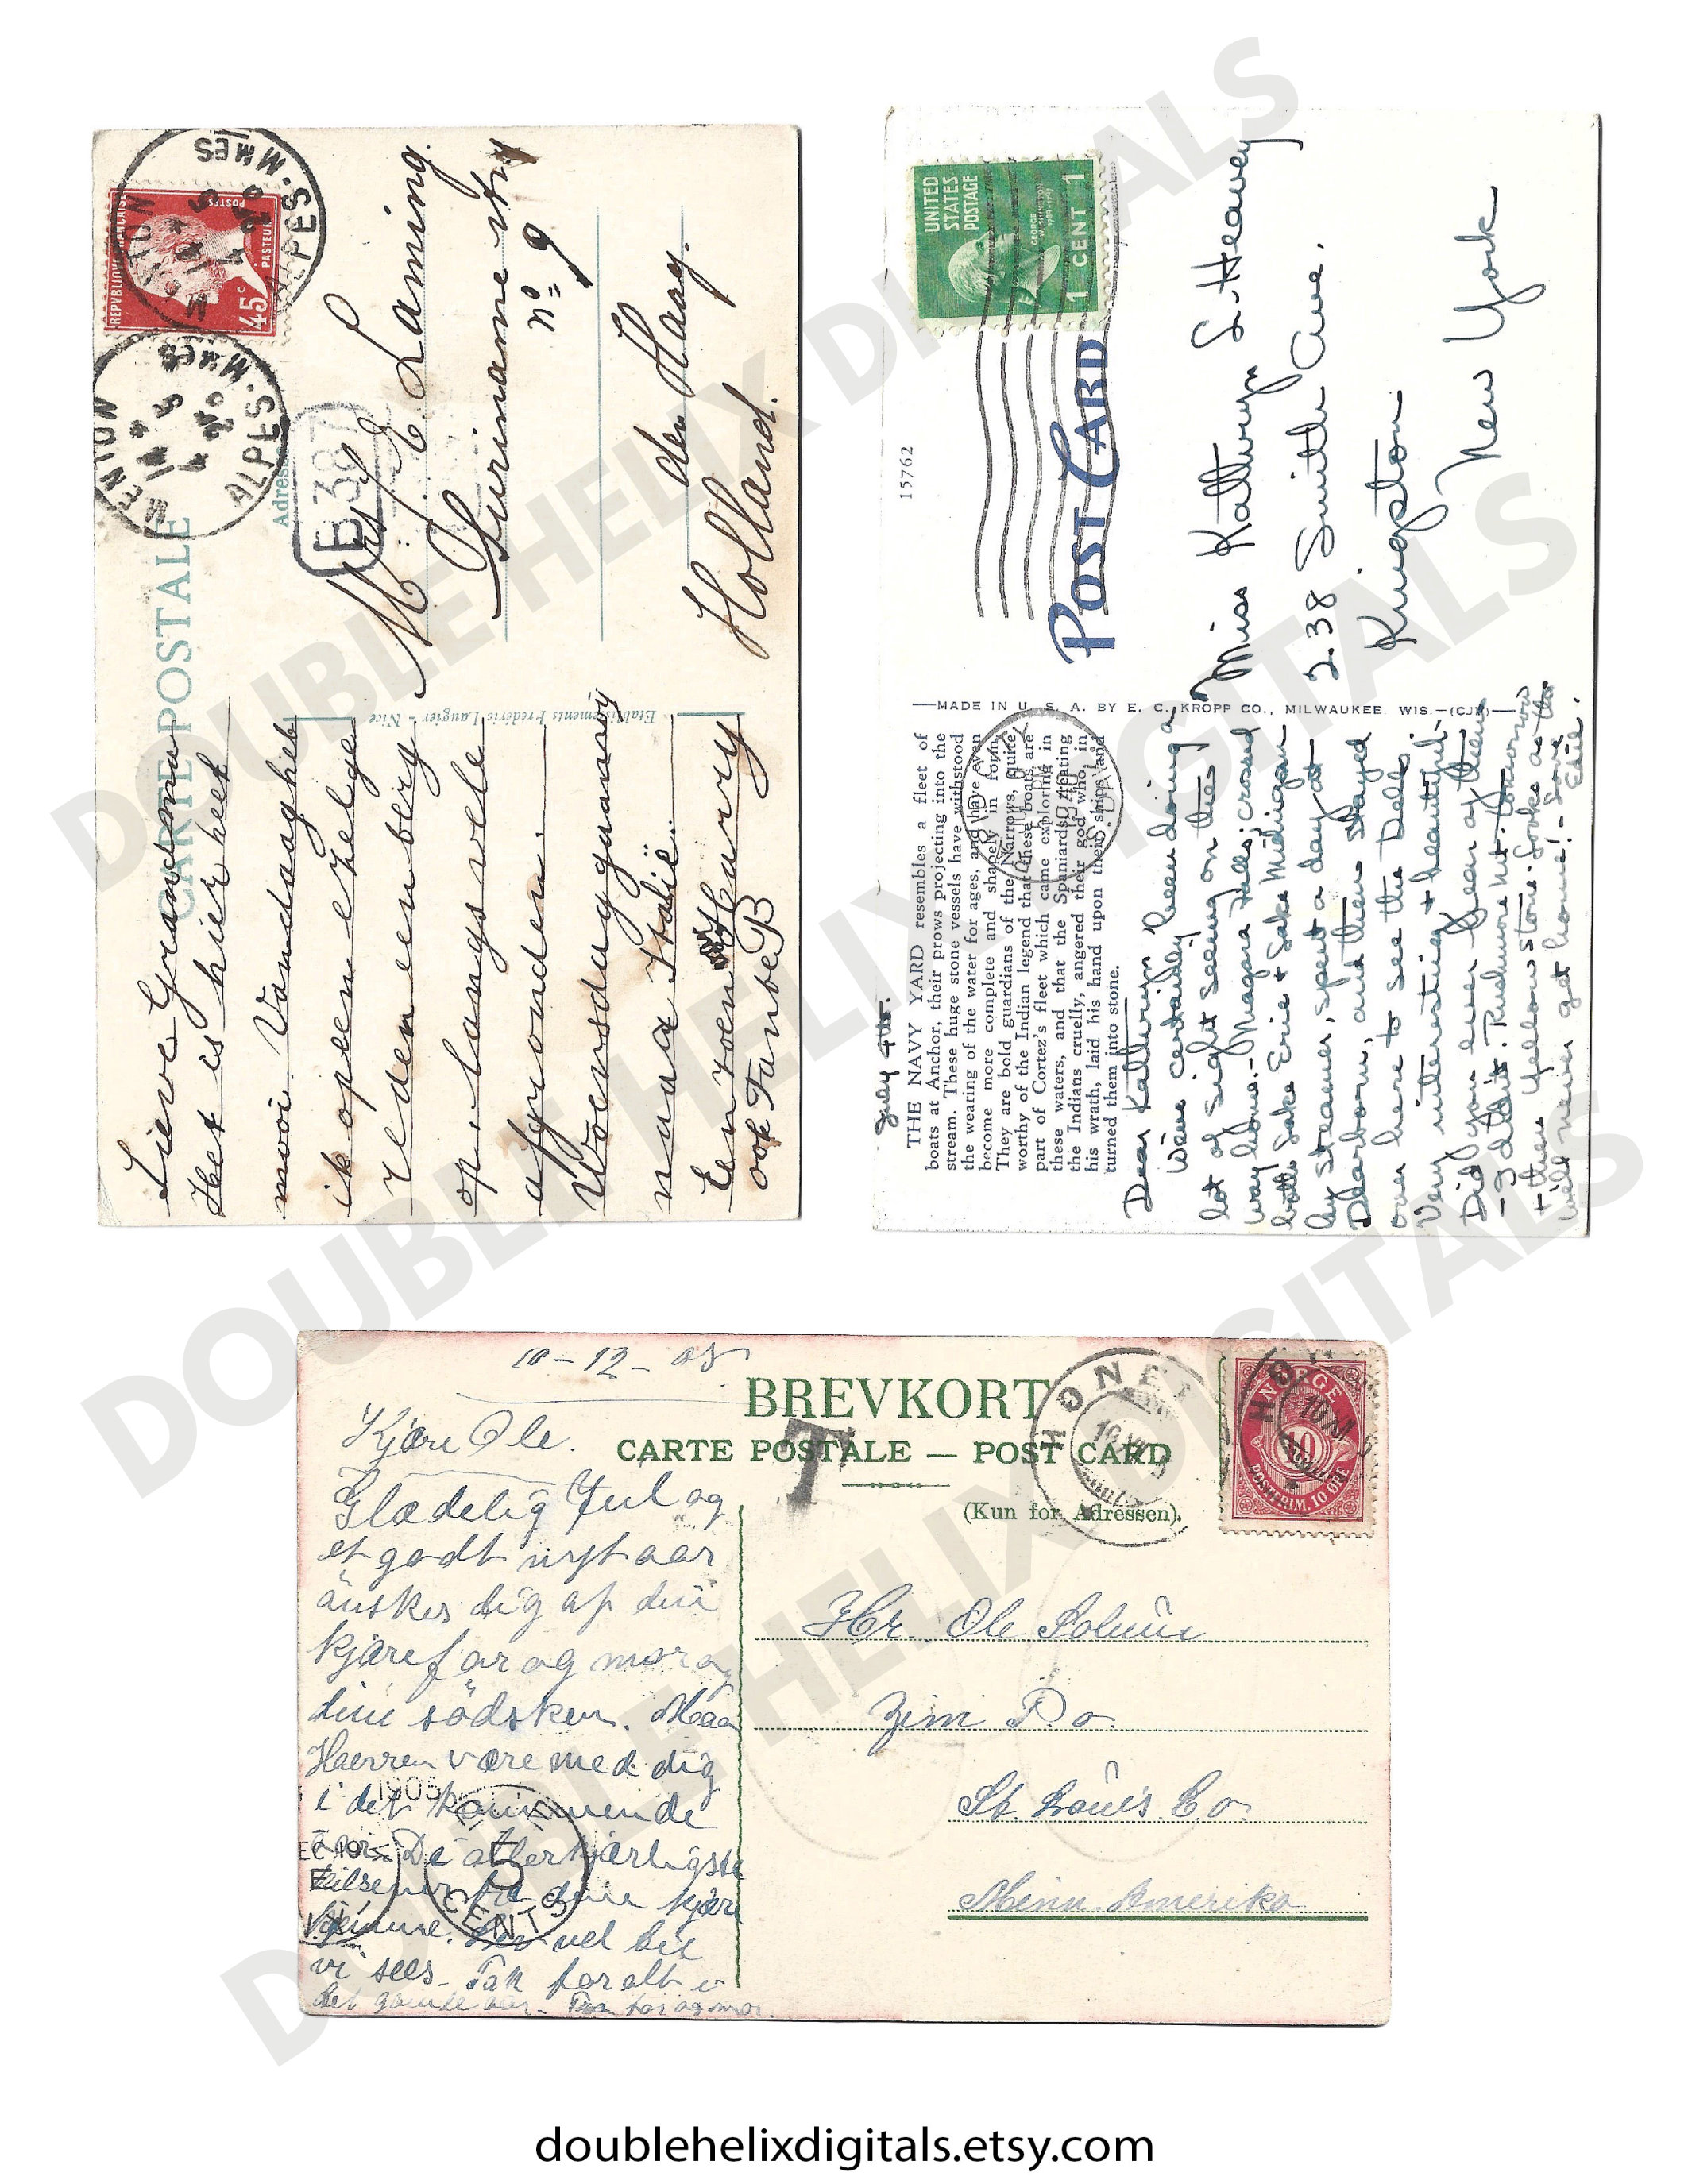 CARTE POSTALE
Adresse
REPVBLIQVE FRANCAISE
POSTES
PASTEUR
45c
MENTON
14 5
4 26
ALPES-MMES
MENTON
14 5
4 26
ALPES-MMES
E 387
Etablissements Frédéric Laugier - Nice
Lieve Grandma
Het is hier heel
mooi. Vandaag heb
ik op een ezeltje
reden en berg
op. langs vele
afgronden.
Woensdag gaan wij
naar Italië.
Een zoen Harry
ook Tante B
Mrs E Laning.
Suriname str
no 9
den Haag.
Holland.
15762
UNITED
STATES
POSTAGE
GEORGE
WASHINGTON
1 CENT 1
POST CARD
MADE IN U. S. A. BY E. C. KROPP CO., MILWAUKEE, WIS.—(CJX)
July 4th.
THE NAVY YARD resembles a fleet of
boats at Anchor, their prows projecting into the
stream. These huge stone vessels have withstood
the wearing of the water for ages, and have even
become more complete and shapely in form.
They are bold guardians of the Narrows, quite
worthy of the Indian legend that these boats are
part of Cortez's fleet which came exploring in
these waters, and that the Spaniards, treating
the Indians cruelly, angered their god who, in
his wrath, laid his hand upon them, ships and
turned them into stone.
Dear Kathryn
We've certainly been doing a
lot of sight seeing on this
way home. - Niagara Falls; crossed
both Lake Erie & Lake Michigan
by steamer, spent a day at
Dearborn, and then stayed
over here to see the Dells.
Very interesting & beautiful.
Did you ever hear of them
- I didn't. Rushmore Mt. tomorrow
& then Yellowstone. Looks as tho
we'll never get home! - Love
Miss Kathryn L. Heavey
238 Smith Ave.
Kingston
New York
10-12-05
BREVKORT
CARTE POSTALE — POST CARD
(Kun for Adressen).
T
NORGE
10
POSTFRIM. 10 ØRE
Kjære Ole.
Glædelig Jul og
et godt nyt aar
önskes dig af din
kjære far og mor og
dine södsken. Maa
Herren være med dig
i det kommende
aar. De aller kjærligste
hilsener fra dine kjære
hjemme. Lev vel til
vi sees. Tak for alt i
det gamle aar. Far og mor.
1905
DEC 19
5
CENTS
Hr. Ole
Zim P.o.
St. Louis Co.
Minn. Amerika.
DOUBLE HELIX DIGITALS
DOUBLE HELIX DIGITALS
DOUBLE HELIX DIGITALS
doublehelixdigitals.etsy.com